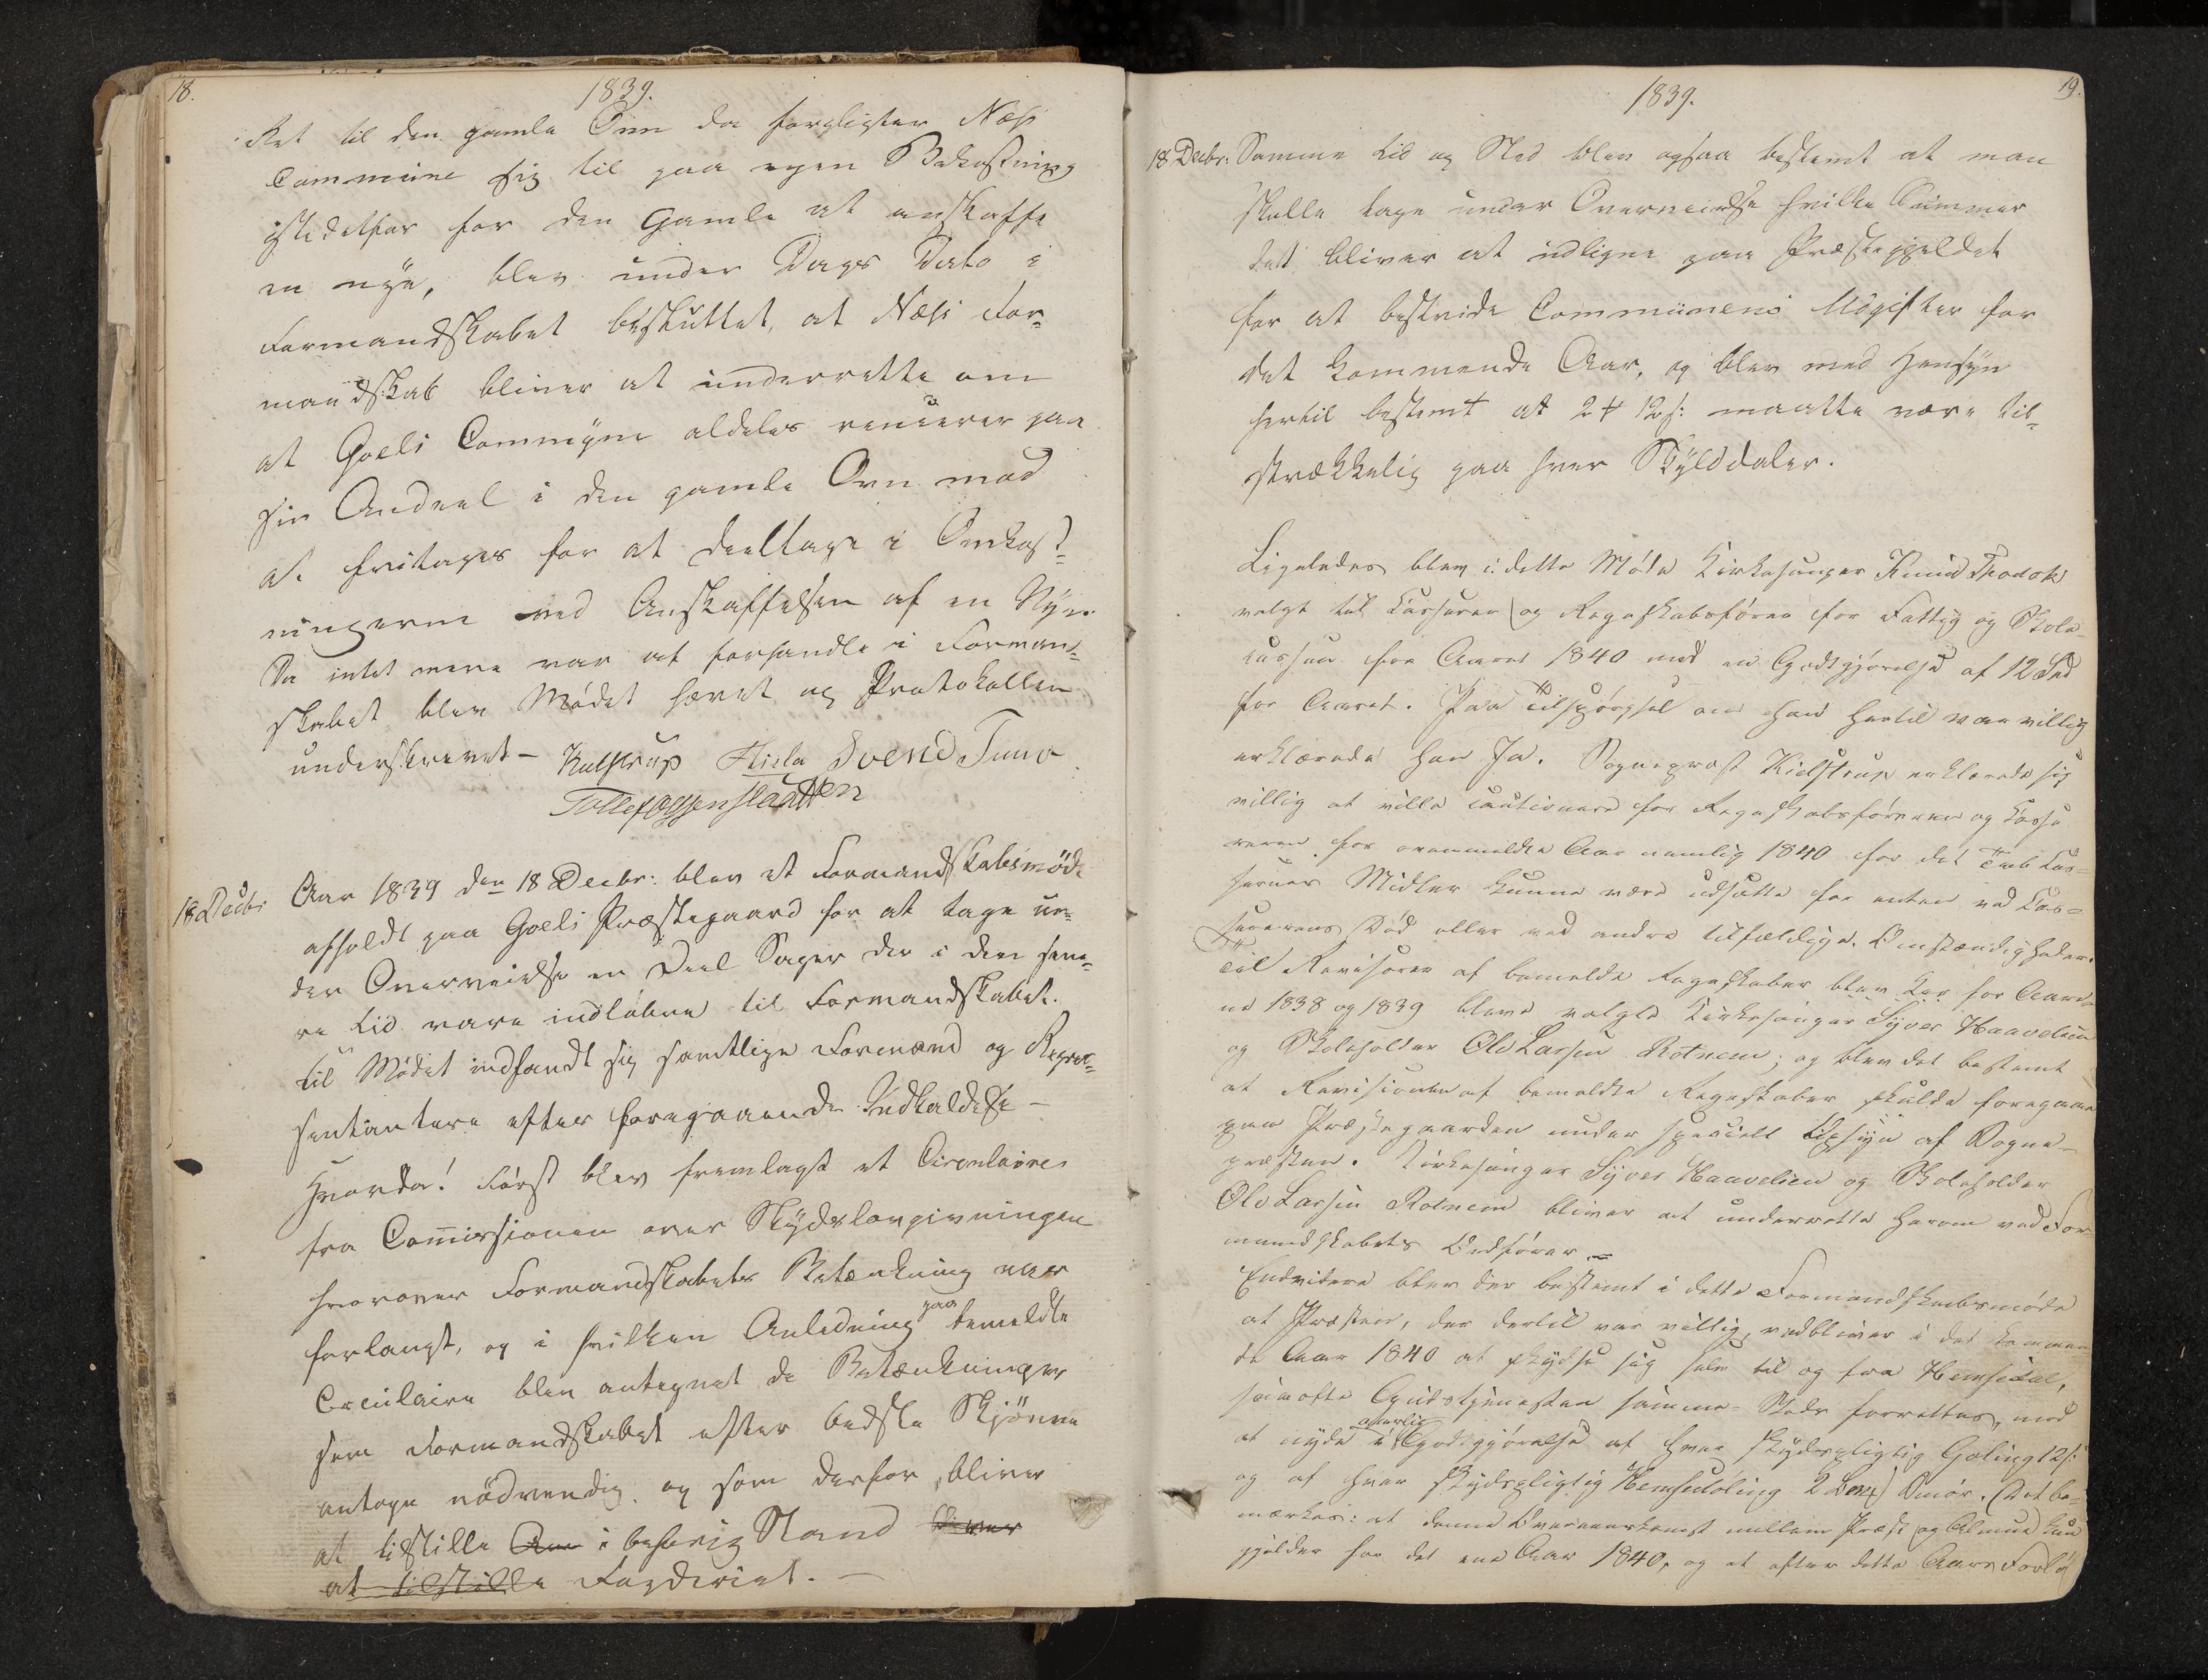 18.
1839.
Ret til den gamle Ovn da forpligter Næss
Commune sig til paa egen Bekostning
istedetfor for den Gamle at anskaffe
en nye, blev under Dags Dato i
Formandskabet besluttet, at Næss For-
mandskab bliver at underrette om
at Goels Commune aldeles renuncerer paa
sin Andeel i den gamle Ovn mod
at fritages for at deeltage i Omkost-
ningerne ved Anskaffelsen af en Nye.
Da intet mere var at forhandle i Formand-
skabet blev Mødet hævet og Protokollen
underskrevet – Kielstrup Svend Tuno
18 Decbr:
Aar 1839 den 18 Decbr: blev et Formandskabsmøde
afholdt paa Goels Præstegaard for at tage un-
der Overveielse en Deel Sager der i den sene-
re Tid vare indløbne til Formandskabet.
Til Mødet indfandt sig samtlige Formænd og Repræ-
sentantere efter foregaaende Indkaldelse –
Hvorda! Først blev fremlagt et Circulaire
fra Commissionen over Skydslovgivningen
hvorover Formandskabets Betænkning var
forlangt, og i hvilken Anledning paa bemeldte
Circulaire blev antegnet de Betænkninger
som Formandskabet efter bedste Skjønne
antoge nødvendig og som derfor bliver
at tilstille i behørig Stand bliver
at tilstille Fogderiet. –
19.
1839.
18 Decbr: Samme Tid og Sted blev ogsaa bestemt at man
skulle tage under Overveielse hvilke Summer
der bliver at udligne paa Præstegjeldet
for at bestride Communens Udgifter for
det kommende Aar, og blev med Hensyn
hertil bestemt at 2 12 s: maatte være til-
strækkelig paa hver Skylddaler.
Ligeledes blev i dette Møde Kirkesanger Knud
valgt til Casserer og Regnskabsfører for Fattig og Skole-
cassen for Aaret 1840 med en Godtgjørelse af 12 Spd
for Aaret. Paa Tilspørgsel om han hertil var villig
erklærede han Ja. Sognepræst Kielstrup erklærede sig
villig at ville cautionere for Regnskabsføreren og Casse
reren for ovenmeldte Aar nemlig 1840 for det Tab Cas-
sernes Midler kunne være udsatte for enten ved Cas-
sererens Død eller ved andre tilfældige Omstændigheder.
Til Revisorer af bemeldte Regnskaber blev for Aare-
ne 1838 og 1839 bleve valgte Kirkesanger Syver Haavelien
og Skoleholder Ole Larsen Rotneim; og blev det bestemt
at Revisionen af bemeldte Regnskaber skulde foregaae
paa Præstegaarden under specielt Opsyn af Sogne-
præsten. Kirkesanger Syver Haavelien og Skoleholder
Ole Larsen Rotneim bliver at underrette herom ved For-
mandskabets Ordfører. –
Endvidere blev der bestemt i dette Formandskabsmøde
at Præsten, der dertil var villig, vedbliver i det kommen
de Aar 1840 at skydse sig selv til og fra Hemsedal,
saa ofte Gudstjenesten samme Steds forrettes, mod
at nyde aarlig i Godtgjørelse af hver skydspligtig Goling 12 s:
og af hver skydspligtig Hemsedøling 2 Smør. Det be-
mærkes: at denne Overeenskomst mellem Præst og Almue kun
gjelder for det ene Aar 1840, og at efter dette Aars Forlø